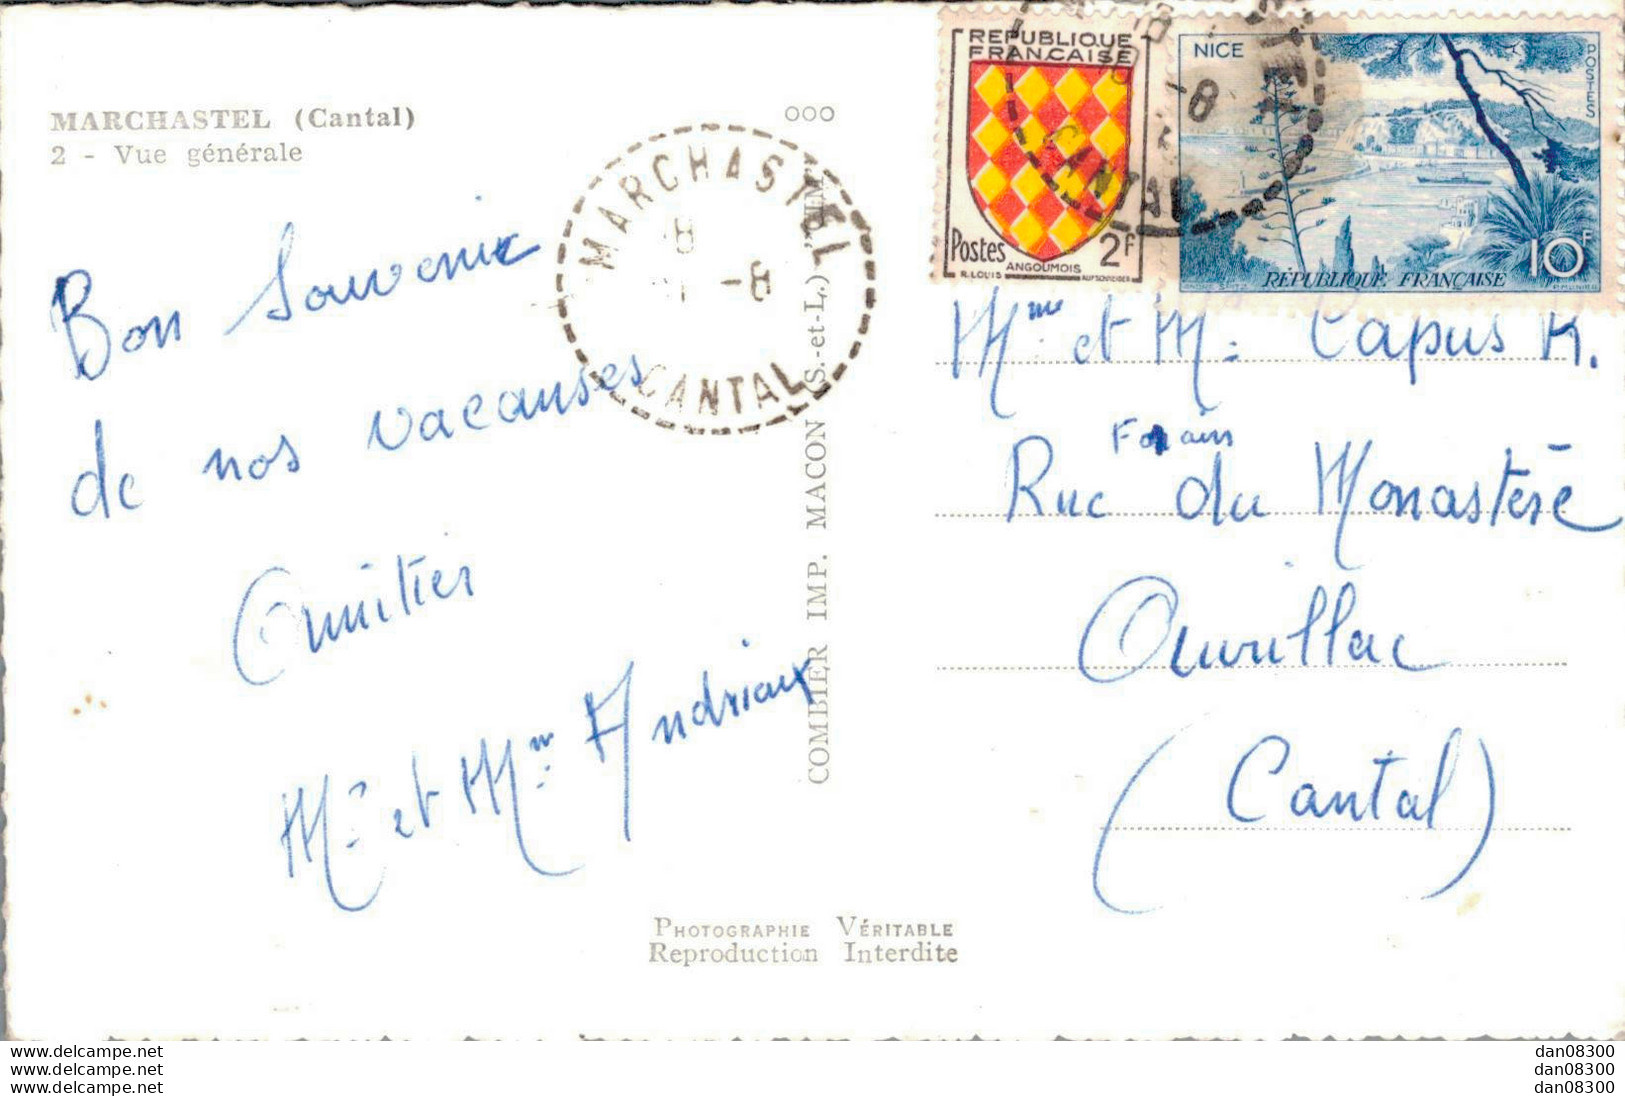 MARCHASTEL (Cantal)
2 - Vue générale
Bon Souvenir
de nos vacanses
Amitiés
Mr et Mme Andriaux
MARCHASTEL
18
-8
CANTAL
COMBIER IMP. MACON (S.-et-L.) "CIM"
PHOTOGRAPHIE VÉRITABLE
Reproduction Interdite
REPUBLIQUE
FRANCAISE
Postes 2F
ANGOUMOIS
R. LOUIS
18
-8
CANTAL
NICE
POSTES
10F
RÉPUBLIQUE FRANÇAISE
Mme et M. Capus R.
Forain
Rue du Monastère
Aurillac
(Cantal)
www.delcampe.net
www.delcampe.net
www.delcampe.net
dan08300
dan08300
dan08300